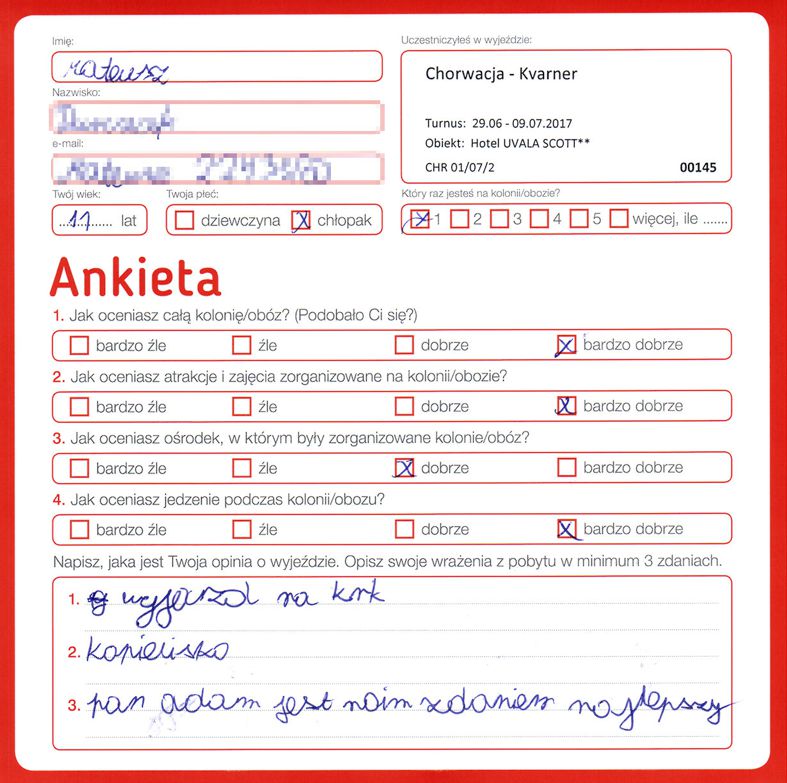 Imię:
Mateusz
Nazwisko:
e-mail:
Twój wiek:
Twoja płeć:
....11....... lat
dziewczyna
chłopak
Uczestniczyłeś w wyjeździe:
Chorwacja - Kvarner
Turnus: 29.06 - 09.07.2017
Obiekt: Hotel UVALA SCOTT**
CHR 01/07/2
00145
Który raz jesteś na kolonii/obozie?
1 2 3 4 5 więcej, ile .......
Ankieta
1. Jak oceniasz całą kolonię/obóz? (Podobało Ci się?)
bardzo źle źle dobrze bardzo dobrze
2. Jak oceniasz atrakcje i zajęcia zorganizowane na kolonii/obozie?
bardzo źle źle dobrze bardzo dobrze
3. Jak oceniasz ośrodek, w którym były zorganizowane kolonie/obóz?
bardzo źle źle dobrze bardzo dobrze
4. Jak oceniasz jedzenie podczas kolonii/obozu?
bardzo źle źle dobrze bardzo dobrze
Napisz, jaka jest Twoja opinia o wyjeździe. Opisz swoje wrażenia z pobytu w minimum 3 zdaniach.
1. wyjazd na krk
2. kąpielisko
3. pan adam jest moim zdaniem najlepszy